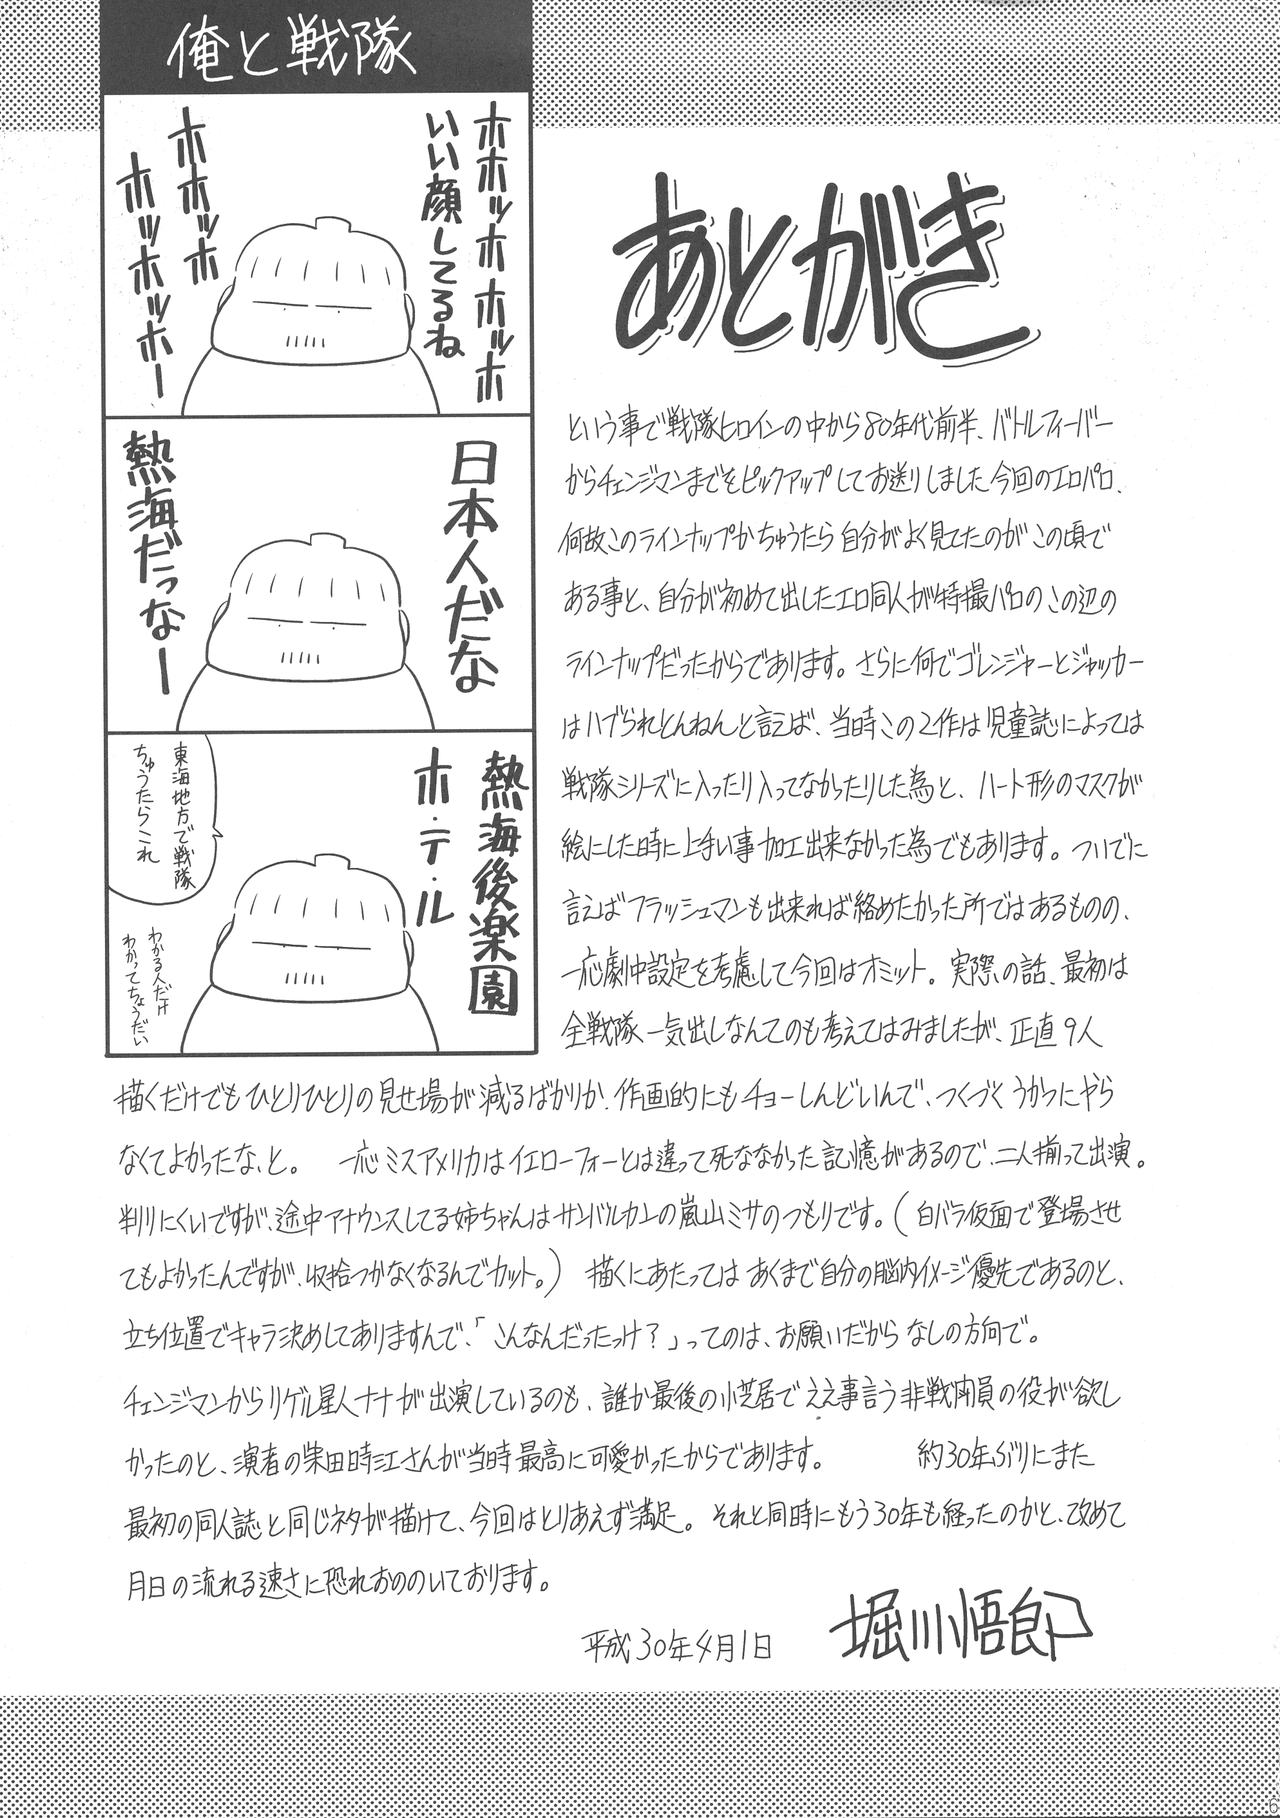 俺と戦隊
ホホッホホホッホ
いい顔してるね
ホホッホ
ホッホッホー
日本人だな
熱海だっなー
熱海後楽園
ホ・テ・ル
東海地方で戦隊
ちゅうたらこれ
わかる人だけ
わかってちょうだい
あとがき
という事で戦隊ヒロインの中から80年代前半、バトルフィーバー
からチェンジマンまでをピックアップしてお送りしました今回のエロパロ、
何故このラインナップかちゅうたら自分がよく見てたのがこの頃で
ある事と、自分が初めて出したエロ同人が特撮パロのこの辺の
ラインナップだったからであります。さらに何でゴレンジャーとジャッカー
はハブられとんねんと言えば、当時この2作は児童誌によっては
戦隊シリーズに入ったり入ってなかったりした為と、ハート形のマスクが
絵にした時に上手い事加工出来なかった為でもあります。ついでに
言えばフラッシュマンも出来れば絡めたかった所ではあるものの、
一応劇中設定を考慮して今回はオミット。実際の話、最初は
全戦隊一気出しなんてのも考えてはみましたが、正直9人
描くだけでもひとりひとりの見せ場が減るばかりか、作画的にもチョーしんどいんで、つくづくうかつにやら
なくてよかったな、と。 一応ミスアメリカはイエローフォーとは違って死ななかった記憶があるので、二人揃って出演。
判りにくいですが、途中アナウンスしてる姉ちゃんはサンバルカンの嵐山ミサのつもりです。(白バラ仮面で登場させ
てもよかったんですが、収拾つかなくなるんでカット。) 描くにあたってはあくまで自分の脳内イメージ優先であるのと、
立ち位置でキャラ決めしてありますんで、「こんなんだったっけ?」ってのは、お願いだからなしの方向で。
チェンジマンからリゲル星人ナナが出演しているのも、誰か最後の小芝居でええ事言う非戦闘員の役が欲し
かったのと、演者の柴田時江さんが当時最高に可愛かったからであります。 約30年ぶりにまた
最初の同人誌と同じネタが描けて、今回はとりあえず満足。それと同時にもう30年も経ったのかと、改めて
月日の流れる速さに恐れおののいております。
平成30年4月1日
堀川悟郎